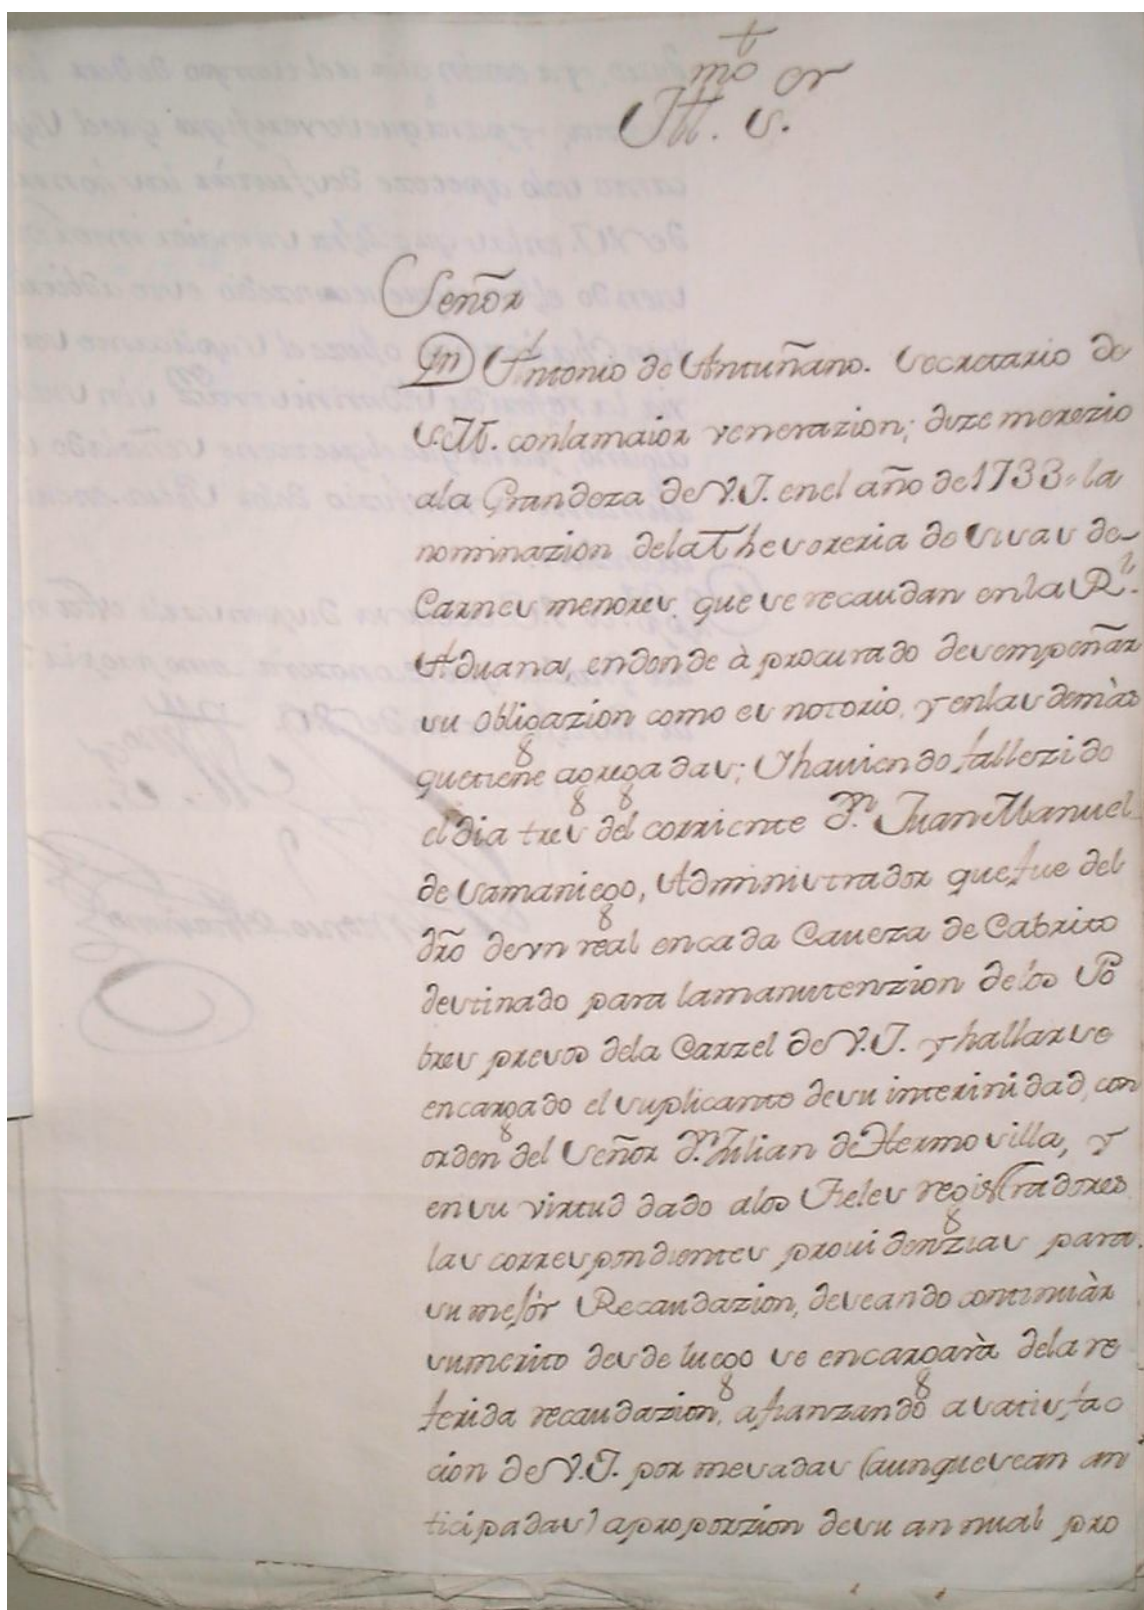 †
Ill.mo S.or
Señor
Dn Antonio de Antuñano. Secretario de
S.M. conlamaior venerazion; dize merezio
ala Grandeza de V.I. enel año de 1733 la
nominazion dela Thesoreria de Sisas de
Carnes menores, que se recaudan enla R.l
Aduana, endonde à procurado desempeñar
su obligazion como es notorio, y enlas demàs
quetiene agregadas; Y haviendo fallezido
el dia tres del corriente D.n Juan Manuel
de Samaniego, Administrador que fue del
dro deun real encada Caveza de Cabrito
destinado para lamanutenzion delos Po
bres presos dela Carzel de V.I. y hallarse
encargado el suplicante desu interinidad, con
orden del Señor D.n Julian de Hermosilla, y
ensu virtud dado alos Fieles registradores
las correspondientes providenzias para
su mejór Recaudazion, deseando continuàr
sumerito desde luego se encargarà dela re
ferida recaudazion, afianzando a satisfac
cion de V.I. por mesadas (aunquesean an
ticipadas) aproporzion desu annual pro